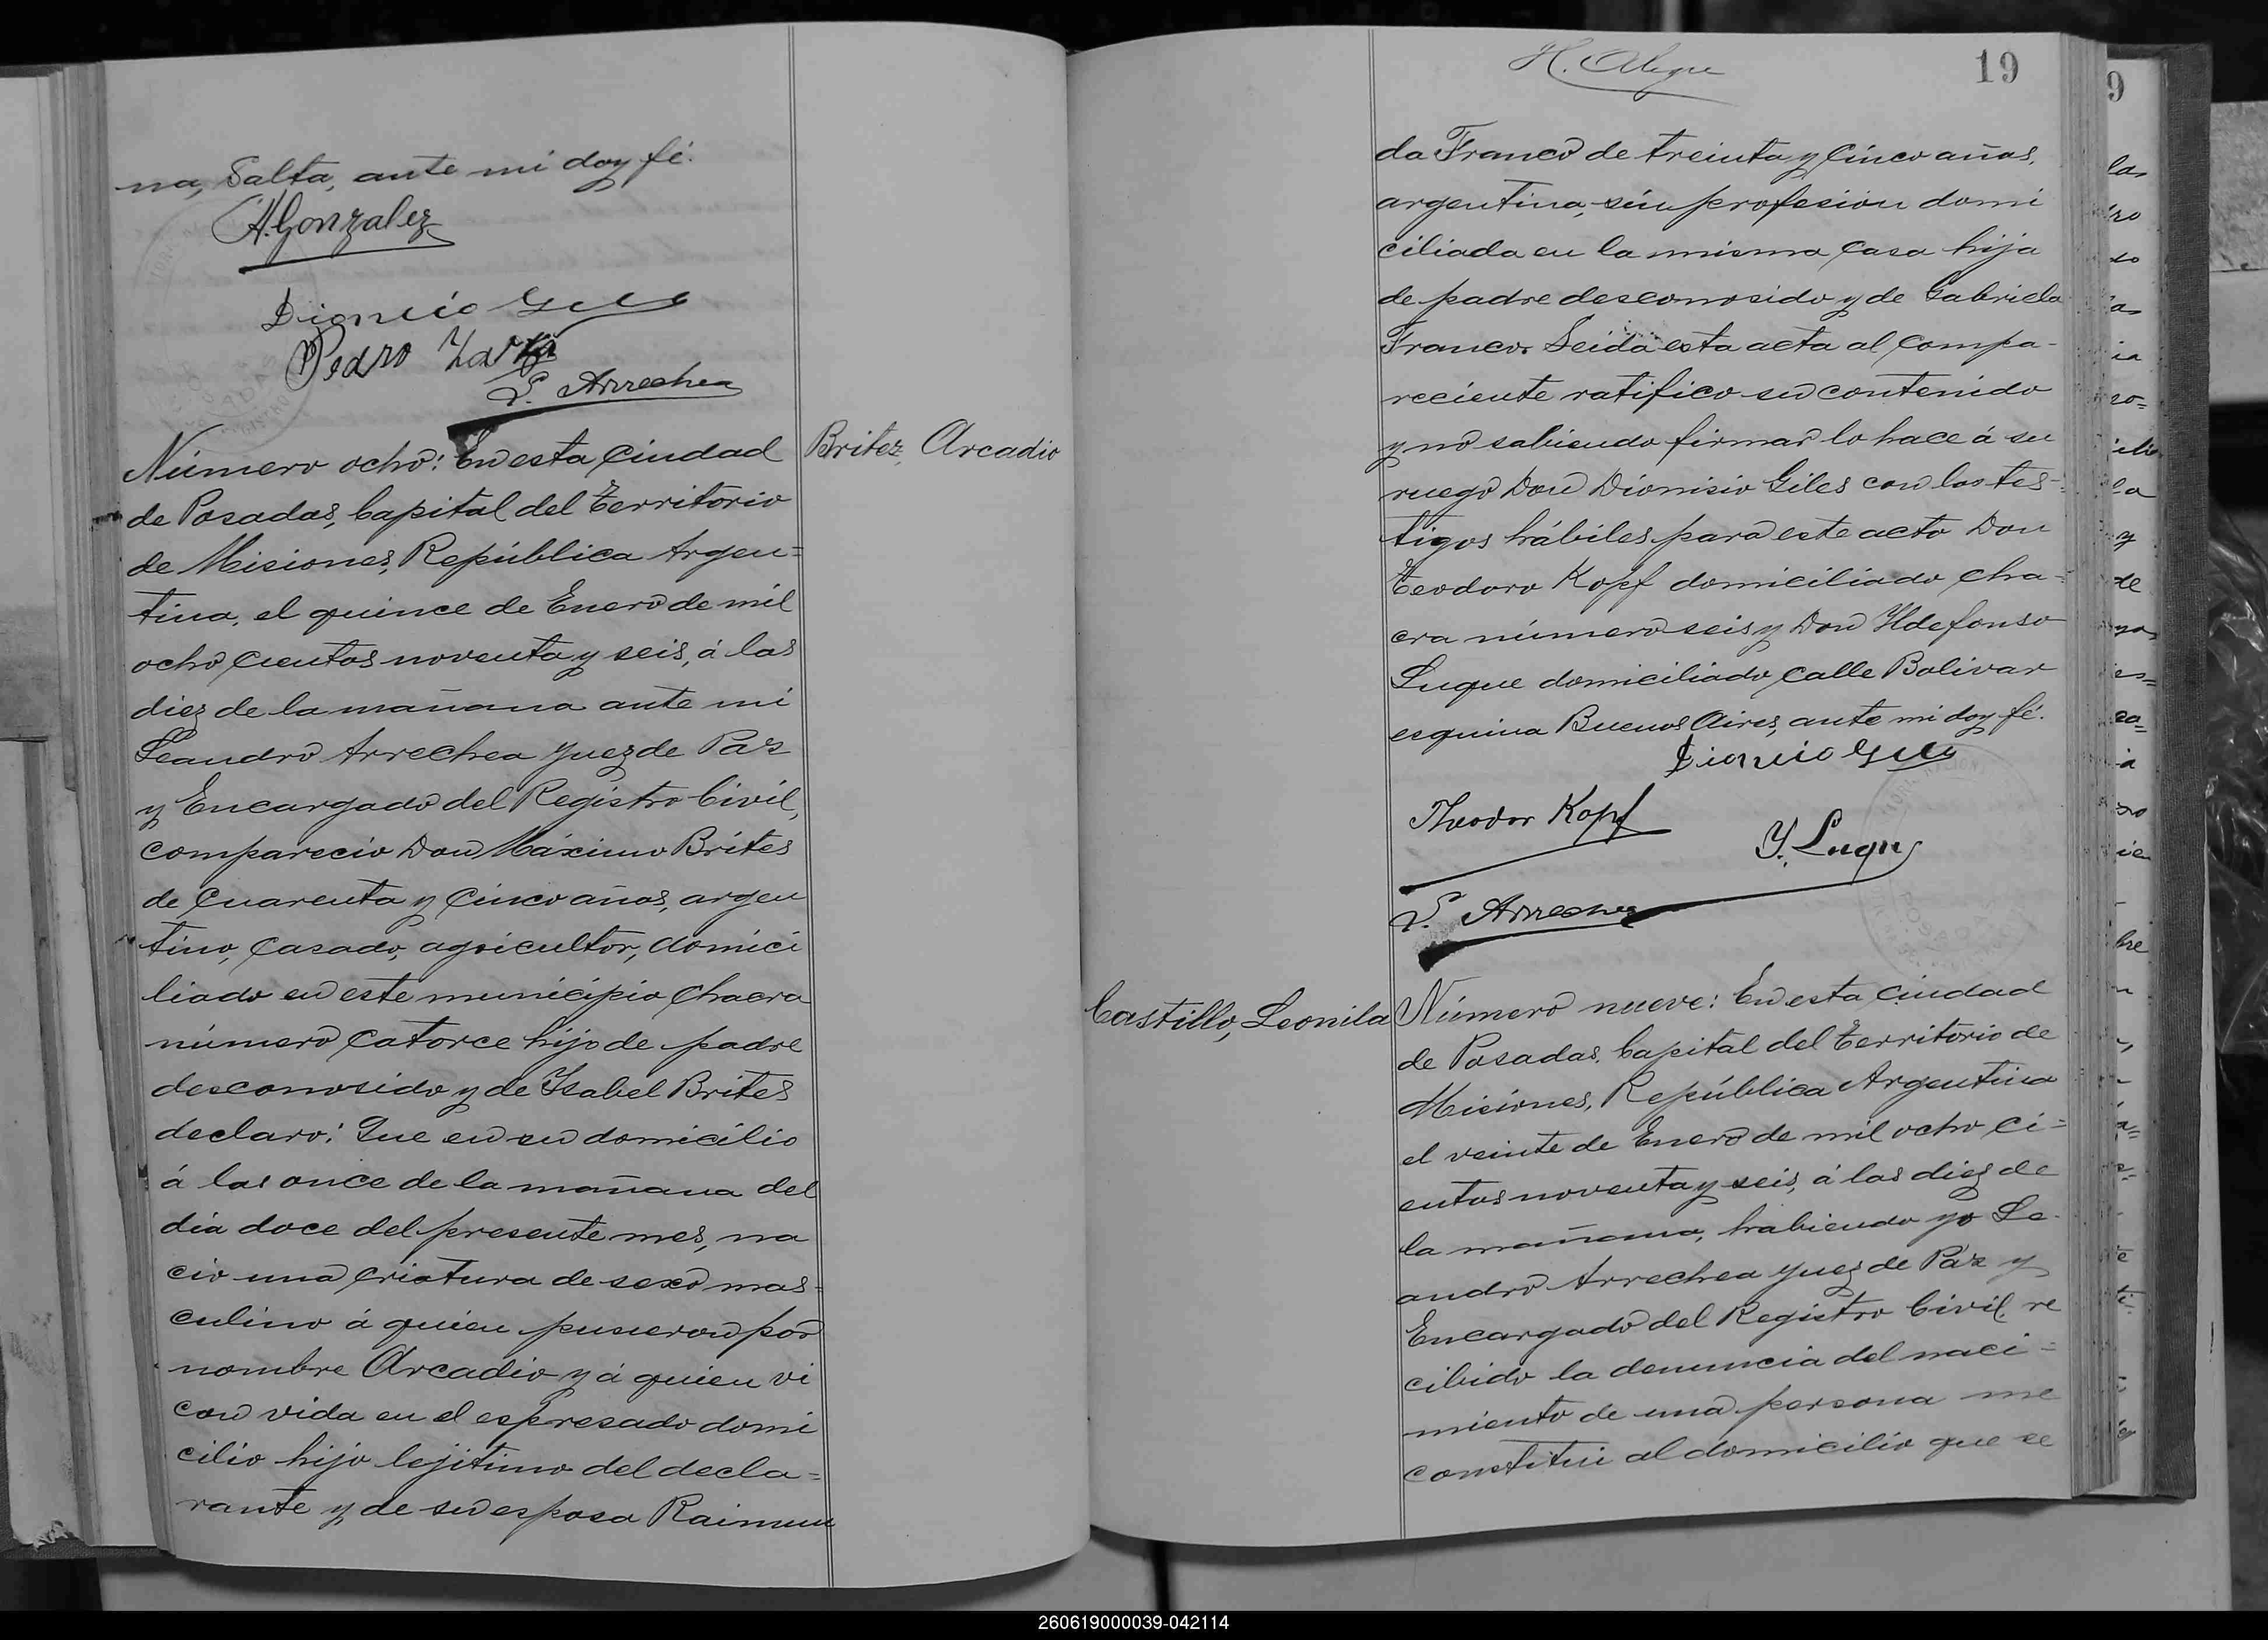 na, Salta, ante mi doy fé.
A. Gonzalez
Dionicio Giles
Pedro
L. Arrechea
Número ocho: En esta Ciudad
de Posadas, Capital del Territorio
de Misiones, República Argen=
tina, el quince de Enero de mil
ocho cientos noventa y seis, á las
diez de la mañana ante mi
Leandro Arrechea Juez de Paz
y Encargado del Registro Civil,
comparecio Don Máximo Brites
de Cuarenta y Cinco años, argen
tino, Casado, agricultor, domici
liado en este municipio Chacra
número Catorce hijo de padre
desconosido y de Isabel Brites
declaro: Que en su domicilio
á las once de la mañana del
dia doce del presente mes, na
cio una Criatura de sexo mas=
culino á quien pusieron por
nombre Arcadio y á quien vi
con vida en el espresado domi
cilio hijo lejitimo del decla=
rante y de su esposa Raimun
Britez, Arcadio
H. Alegre
19
da Franco de treinta y Cinco años,
argentina, sin profesion domi
ciliada en la misma Casa hija
de padre desconosido y de Gabriela
Franco. Leida esta acta al Compa-
reciente ratifico su contenido
y no sabiendo firmar lo hace á su
ruego Don Dionisio Giles con los tes-
tigos hábiles para este acto Don
Teodoro Kopf domiciliado Cha=
cra número seis y Don Ildefonso
Luque domiciliado Calle Bolivar
esquina Buenos Aires, ante mi doy fé.
Dionicio Giles
Theodor Kopf
Y. Luque
L. Arrechea
Castillo, Leonila
Número nueve: En esta Ciudad
de Posadas, Capital del Territorio de
Misiones, República Argentina
el veinte de Enero de mil ocho ci=
entos noventa y seis, á las diez de
la mañana, habiendo yo Le-
andro Arrechea Juez de Paz y
Encargado del Registro Civil, re
cibido la denuncia del naci=
miento de una persona me
constitui al domicilio que se
260619000039-042114